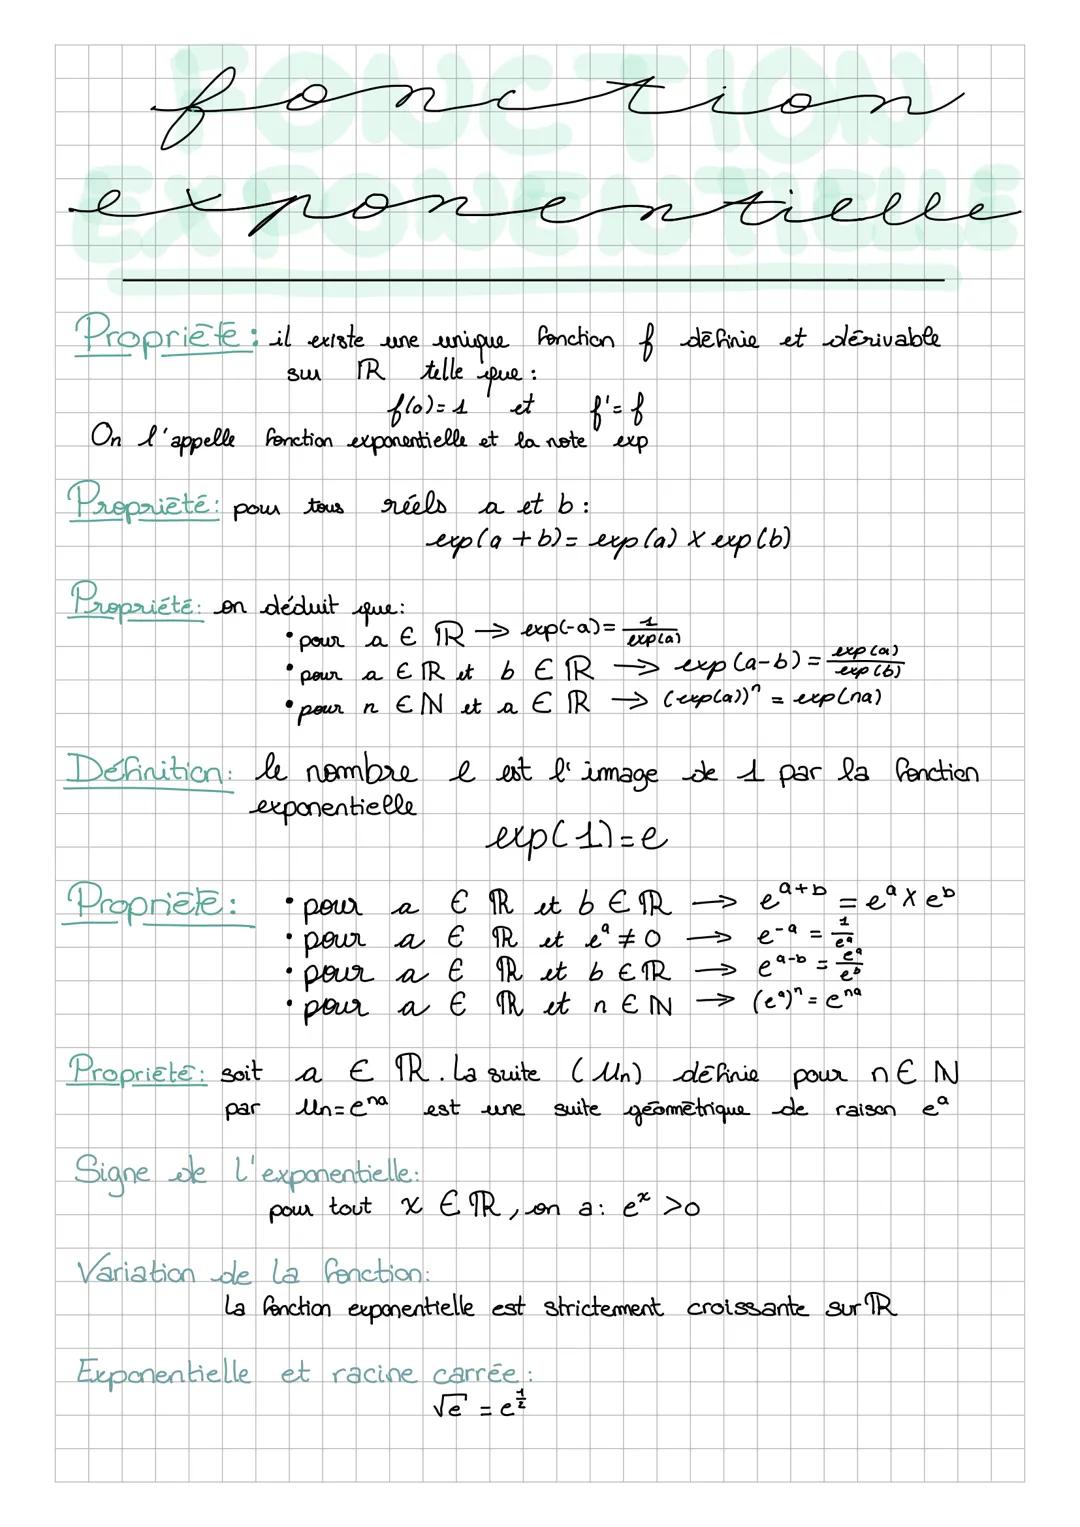 FONCTION EXPONENTIELLE
fonction
exponentielle
Propriété : il existe une unique fonction f définie et dérivable
sur ℝ telle que :
f(0)=1 et f'=f
On l'appelle fonction exponentielle et la note exp
Propriété : pour tous réels a et b :
exp(a+b)= exp(a) × exp(b)
Propriété : on déduit que :
• pour a ∈ ℝ → exp(-a)= 1/exp(a)
• pour a ∈ ℝ et b ∈ ℝ → exp(a-b) = exp(a)/exp(b)
• pour n ∈ ℕ et a ∈ ℝ → (exp(a))ⁿ = exp(na)
Définition : le nombre e est l'image de 1 par la fonction
exponentielle
exp(1)=e
Propriété : • pour a ∈ ℝ et b ∈ ℝ → e^(a+b) = e^a × e^b
• pour a ∈ ℝ et e^a ≠ 0 → e^(-a) = 1/e^a
• pour a ∈ ℝ et b ∈ ℝ → e^(a-b) = e^a/e^b
• pour a ∈ ℝ et n ∈ ℕ → (e^a)^n = e^(na)
Propriété : soit a ∈ ℝ. La suite (Un) définie pour n ∈ ℕ
par Un= e^(na) est une suite géométrique de raison e^a
Signe de l'exponentielle :
pour tout x ∈ ℝ, on a : e^x >0
Variation de la fonction :
La fonction exponentielle est strictement croissante sur ℝ
Exponentielle et racine carrée :
√e = e^(1/2)